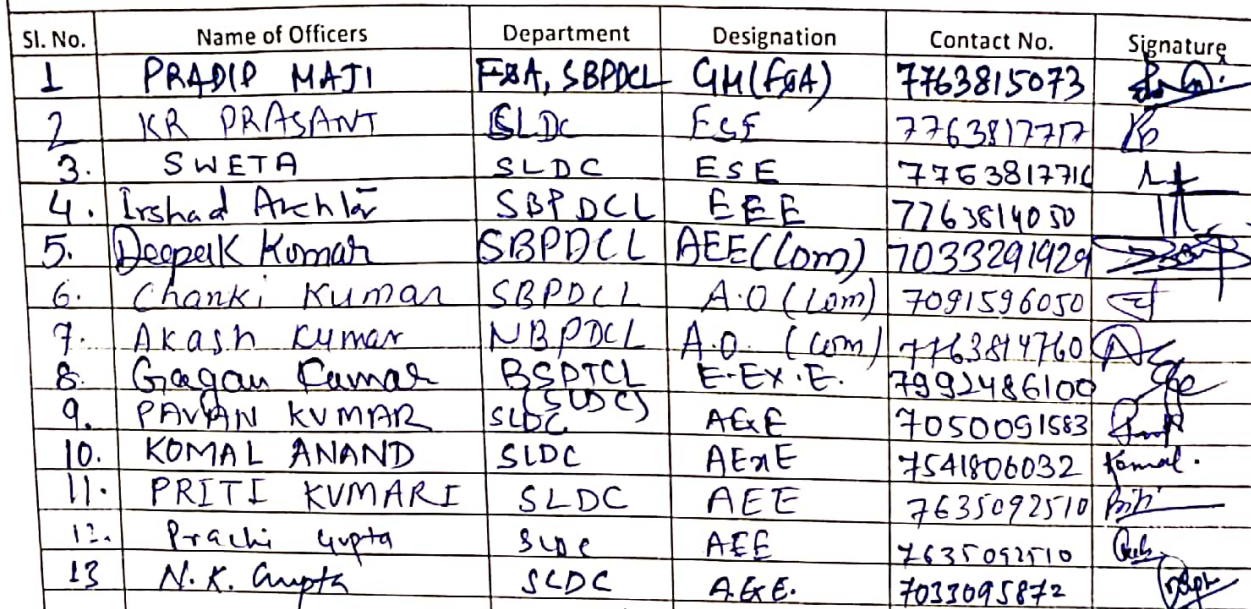 Sl. No. Name of Officers Department Designation Contact No. Signature
1 PRADIP MAJI F&A, SBPDCL GM(F&A) 7763815073
2 KR PRASANT SLDC ESE 7763817717
3. SWETA SLDC ESE 7763817716
4. Irshad SBPDCL EEE 7763814050
5. Deepak Kumar SBPDCL AEE(Com) 7033291929
6. Chanki Kumar SBPDCL A.O (Com) 7091596050
7. Akash Kumar NBPDCL A.O. (Com) 7763814760
8. Gagan Kumar BSPTCL (SLDC) E.EX.E. 7992486100
9. PAVAN KUMAR SLDC AExE 7050051583
10. KOMAL ANAND SLDC AExE 7541806032 Komal.
11. PRITI KUMARI SLDC AEE 7635092510 Priti
12. Prachi Gupta SLDC AEE 7635092510
13 N.K. Gupta SLDC AExE. 7033095872